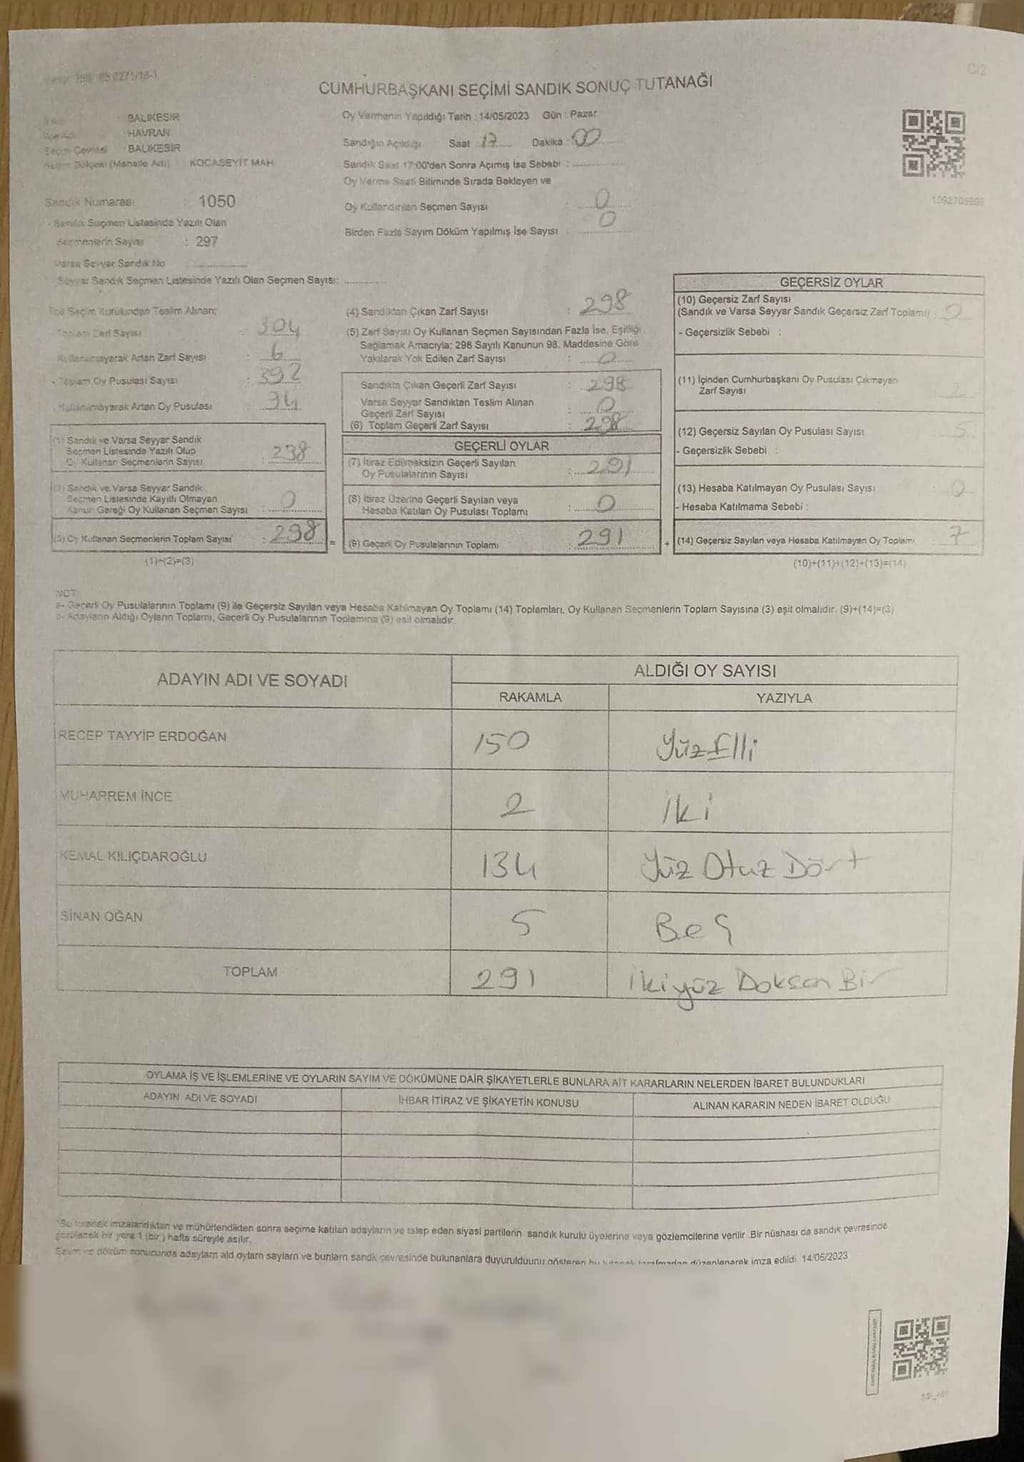 CUMHURBAŞKANI SEÇİMİ SANDIK SONUÇ TUTANAĞI
C/2
BALIKESİR
HAVRAN
Seçim Çevresi BALIKESİR
(Mahalle Adı) KOCASEYİT MAH
Sandık Numarası : 1050
- Sandık Seçmen Listesinde Yazılı Olan
Seçmenlerin Sayısı : 297
Varsa Seyyar Sandık No
Seyyar Sandık Seçmen Listesinde Yazılı Olan Seçmen Sayısı:
Oy Vermenin Yapıldığı Tarih : 14/05/2023 Gün : Pazar
Sandığın Açıldığı Saat 17 Dakika : 00
Sandık Saat 17:00'den Sonra Açılmış İse Sebebi :
Oy Verme Saati Bitiminde Sırada Bekleyen ve
Oy Kullandırılan Seçmen Sayısı : 0
Birden Fazla Sayım Döküm Yapılmış İse Sayısı : 0
1092709899
İlçe Seçim Kurulundan Teslim Alınan;
- Toplam Zarf Sayısı : 304
Kullanılmayarak Artan Zarf Sayısı : 6
- Toplam Oy Pusulası Sayısı : 392
Kullanılmayarak Artan Oy Pusulası : 94
(1) Sandık ve Varsa Seyyar Sandık
Seçmen Listesinde Yazılı Olup
Oy Kullanan Seçmenlerin Sayısı : 298
(2) Sandık ve Varsa Seyyar Sandık
Seçmen Listesinde Kayıtlı Olmayan
Kanun Gereği Oy Kullanan Seçmen Sayısı : 0
(3) Oy Kullanan Seçmenlerin Toplam Sayısı : 298
(1)+(2)=(3)
(4) Sandıktan Çıkan Zarf Sayısı : 298
(5) Zarf Sayısı Oy Kullanan Seçmen Sayısından Fazla İse, Eşitliği
Sağlamak Amacıyla; 298 Sayılı Kanunun 98. Maddesine Göre
Yakılarak Yok Edilen Zarf Sayısı : 0
Sandıkta Çıkan Geçerli Zarf Sayısı : 298
Varsa Seyyar Sandıktan Teslim Alınan
Geçerli Zarf Sayısı : 0
(6) Toplam Geçerli Zarf Sayısı : 298
GEÇERLİ OYLAR
(7) İtiraz Edilmeksizin Geçerli Sayılan
Oy Pusulalarının Sayısı : 291
(8) İtiraz Üzerine Geçerli Sayılan veya
Hesaba Katılan Oy Pusulası Toplamı : 0
(9) Geçerli Oy Pusulalarının Toplamı : 291
GEÇERSİZ OYLAR
(10) Geçersiz Zarf Sayısı
(Sandık ve Varsa Seyyar Sandık Geçersiz Zarf Toplamı) : 0
- Geçersizlik Sebebi :
(11) İçinden Cumhurbaşkanı Oy Pusulası Çıkmayan
Zarf Sayısı : 2
(12) Geçersiz Sayılan Oy Pusulası Sayısı : 5
- Geçersizlik Sebebi :
(13) Hesaba Katılmayan Oy Pusulası Sayısı : 0
- Hesaba Katılmama Sebebi :
(14) Geçersiz Sayılan veya Hesaba Katılmayan Oy Toplamı : 7
(10)+(11)+(12)+(13)=(14)
NOT:
a- Geçerli Oy Pusulalarının Toplamı (9) ile Geçersiz Sayılan veya Hesaba Katılmayan Oy Toplamı (14) Toplamları, Oy Kullanan Seçmenlerin Toplam Sayısına (3) eşit olmalıdır. (9)+(14)=(3)
b- Adayların Aldığı Oyların Toplamı, Geçerli Oy Pusulalarının Toplamına (9) eşit olmalıdır.
ADAYIN ADI VE SOYADI
ALDIĞI OY SAYISI
RAKAMLA YAZIYLA
RECEP TAYYİP ERDOĞAN 150 Yüz Elli
MUHARREM İNCE 2 İki
KEMAL KILIÇDAROĞLU 134 Yüz Otuz Dört
SİNAN OĞAN 5 Beş
TOPLAM 291 İkiyüz Doksan Bir
OYLAMA İŞ VE İŞLEMLERİNE VE OYLARIN SAYIM VE DÖKÜMÜNE DAİR ŞİKAYETLERLE BUNLARA AİT KARARLARIN NELERDEN İBARET BULUNDUKLARI
ADAYIN ADI VE SOYADI İHBAR İTİRAZ VE ŞİKAYETİN KONUSU ALINAN KARARIN NEDEN İBARET OLDUĞU
*Bu tutanak imzalandıktan ve mühürlendikten sonra seçime katılan adayların ve talep eden siyasi partilerin sandık kurulu üyelerine veya gözlemcilerine verilir. Bir nüshası da sandık çevresinde
görülecek bir yere 1 (bir) hafta süreyle asılır.
Sayım ve döküm sonucunda adayların ald oyların sayların ve bunların sandk çevresinde bulunanlara duyurulduunu gösteren bu tutanak tarafımızdan düzenlenerek imza edildi. 14/05/2023